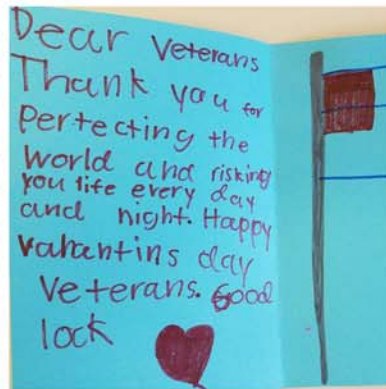 Dear Veterans
Thank you for
pertecting the
world and risking
you life every day
and night. Happy
valiantins day
Veterans. Good
lock